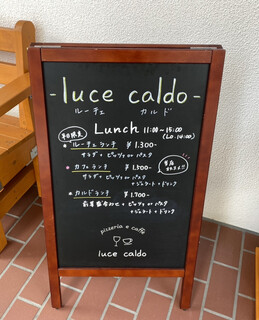 -luce caldo-
ルーチェ カルド
Lunch 11:00~15:00
(L.O. 14:00)
・ルーチェランチ ¥1.300-
サラダ + ピッツァ or パスタ
・カフェランチ ¥1.500-
サラダ + ピッツァ or パスタ
+ジェラート+ドリンク
・カルドランチ ¥1.700-
+ ピッツァ or パスタ
+ジェラート+ドリンク
pizzeria e caffè
luce caldo